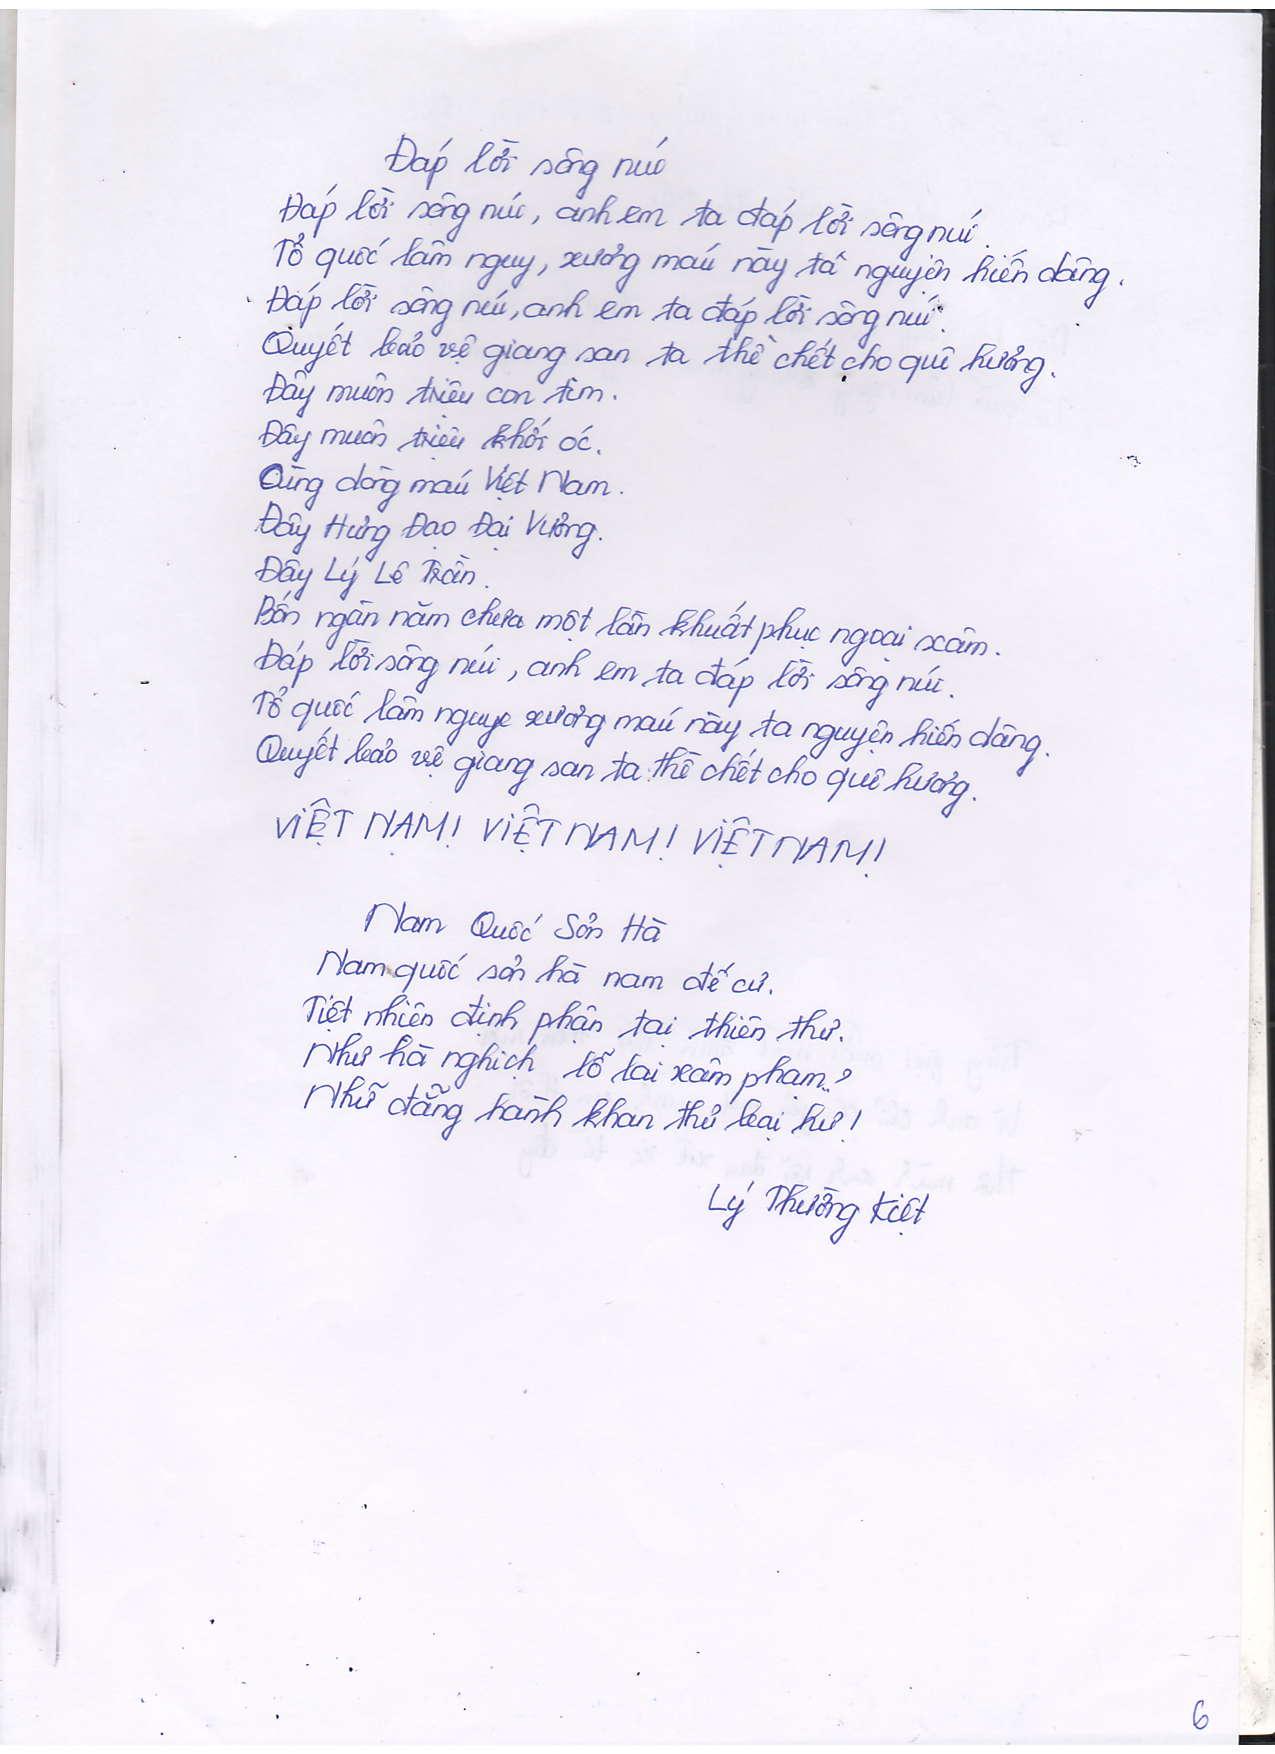 Đáp lời sông núi
Đáp lời sông núi, anh em ta đáp lời sông núi.
Tổ quốc lâm nguy, xương máu này ta nguyện hiến dâng.
Đáp lời sông núi, anh em ta đáp lời sông núi.
Quyết bảo vệ giang san ta thề chết cho quê hương.
Đây muôn triệu con tim.
Đây muôn triệu khối óc.
Cùng dòng máu Việt Nam.
Đây Hưng Đạo Đại Vương.
Đây Lý Lê Trần.
Bốn ngàn năm chưa một lần khuất phục ngoại xâm.
Đáp lời sông núi, anh em ta đáp lời sông núi.
Tổ quốc lâm nguy xương máu này ta nguyện hiến dâng.
Quyết bảo vệ giang san ta thề chết cho quê hương.
VIỆT NAM! VIỆT NAM! VIỆT NAM!
Nam Quốc Sơn Hà
Nam quốc sơn hà nam đế cư.
Tiệt nhiên định phận tại thiên thư.
Như hà nghịch lỗ lai xâm phạm?
Nhữ đẳng hành khan thủ bại hư!
Lý Thường Kiệt
6